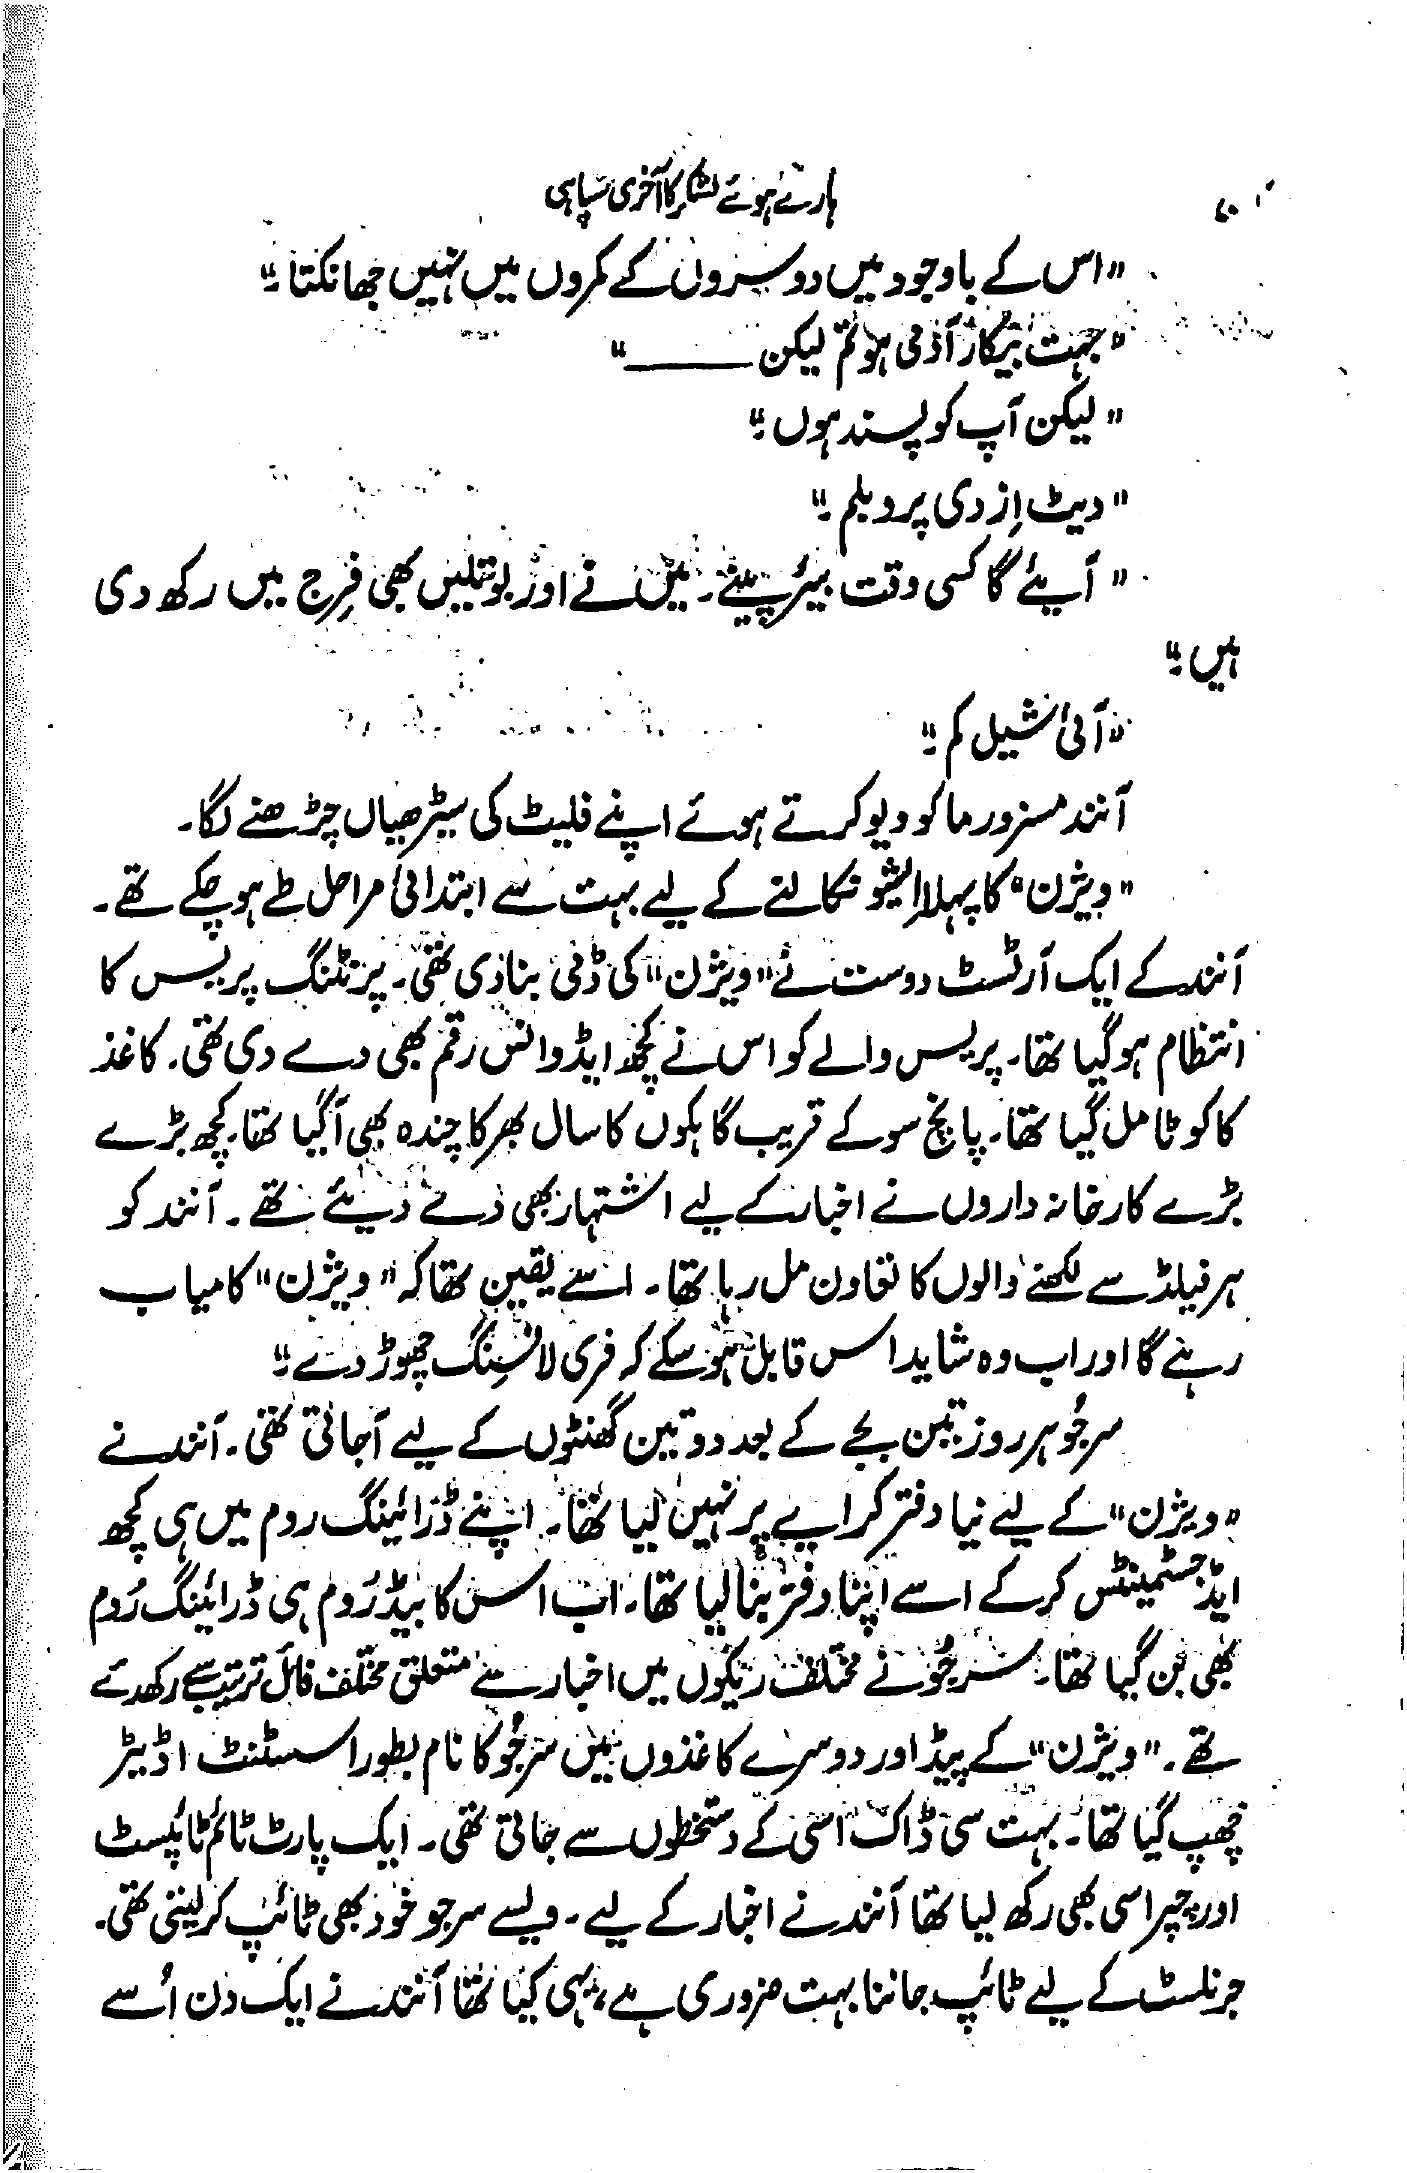 ۷۰
ہارے ہوئے لشکر کا آخری سپاہی
"اس کے باوجود میں دوسروں کے کمروں میں نہیں جھانکتا۔"
"بہت بیکار آدمی ہو تم لیکن ——"
"لیکن آپ کو پسند ہوں۔"
"دیٹ اِز دی پروبلم۔"
"آیئے گا کسی وقت بیئر پینے۔ میں نے اور بوتلیں بھی فِرج میں رکھ دی
ہیں۔"
"آئی شیل کم۔"
آنند مسز ورما کو ویو کرتے ہوئے اپنے فلیٹ کی سیڑھیاں چڑھنے لگا۔
"ویژن" کا پہلا اِیشو نکالنے کے لیے بہت سے ابتدائی مراحل طے ہو چکے تھے۔
آنند کے ایک آرٹسٹ دوست نے "ویژن" کی ڈمی بنا دی تھی۔ پرنٹنگ پریس کا
انتظام ہو گیا تھا۔ پریس والے کو اس نے کچھ ایڈوانس رقم بھی دے دی تھی۔ کاغذ
کا کوٹا مل گیا تھا۔ پانچ سو کے قریب گاہکوں کا سال بھر کا چندہ بھی آ گیا تھا۔ کچھ بڑے
بڑے کارخانہ داروں نے اخبار کے لیے اشتہار بھی دے دیئے تھے۔ آنند کو
ہر فیلڈ سے لکھنے والوں کا تعاون مل رہا تھا۔ اسے یقین تھا کہ "ویژن" کامیاب
رہے گا اور اب وہ شاید اس قابل ہو سکے کہ فری لانسنگ چھوڑ دے۔"
سرجُو ہر روز تین بجے کے بعد دو تین گھنٹوں کے لیے آ جاتی تھی۔ آنند نے
"ویژن" کے لیے نیا دفتر کرایے پر نہیں لیا تھا۔ اپنے ڈرائینگ روم میں ہی کچھ
ایڈجسٹمینٹس کر کے اسے اپنا دفتر بنا لیا تھا۔ اب اس کا بیڈ رُوم ہی ڈرائینگ رُوم
بھی بن گیا تھا۔ سرجُو نے مختلف ریکوں میں اخبار سے متعلق مختلف فائل ترتیب سے رکھ دیے
تھے۔ "ویژن" کے پیڈ اور دوسرے کاغذوں میں سرجُو کا نام بطور اسسٹنٹ اڈیٹر
چھپ گیا تھا۔ بہت سی ڈاک اسی کے دستخطوں سے جاتی تھی۔ ایک پارٹ ٹائم ٹائپسٹ
اور چپراسی بھی رکھ لیا تھا آنند نے اخبار کے لیے۔ ویسے سرجو خود بھی ٹائپ کر لیتی تھی۔
جرنلسٹ کے لیے ٹائپ جاننا بہت ضروری ہے، یہی کہا تھا آنند نے ایک دن اُسے